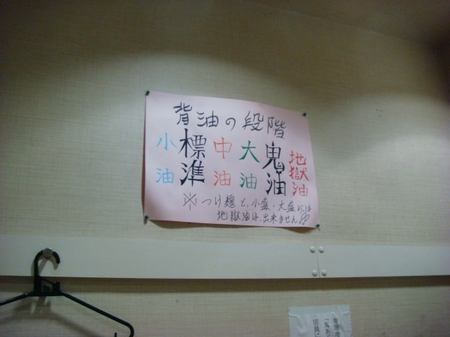 背油の段階
小油 標準 中油 大油 鬼油 地獄油
※つけ麺と、小盛・大盛には
地獄油は出来ません